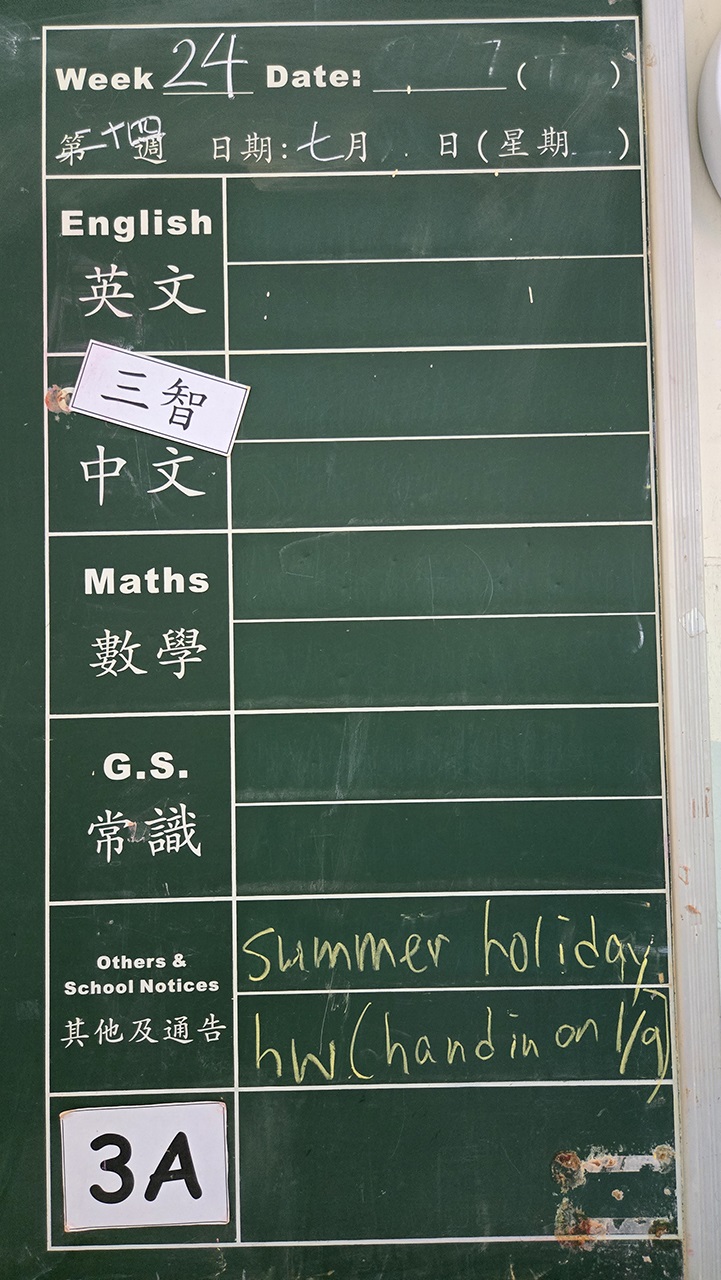 Week 24 Date: 7 ( )
第二十四週 日期:七月 日(星期 )
English
英文
三智
中文
Maths
數學
G.S.
常識
Others &
School Notices
其他及通告
summer holiday
hw (hand in on 1/9)
3A